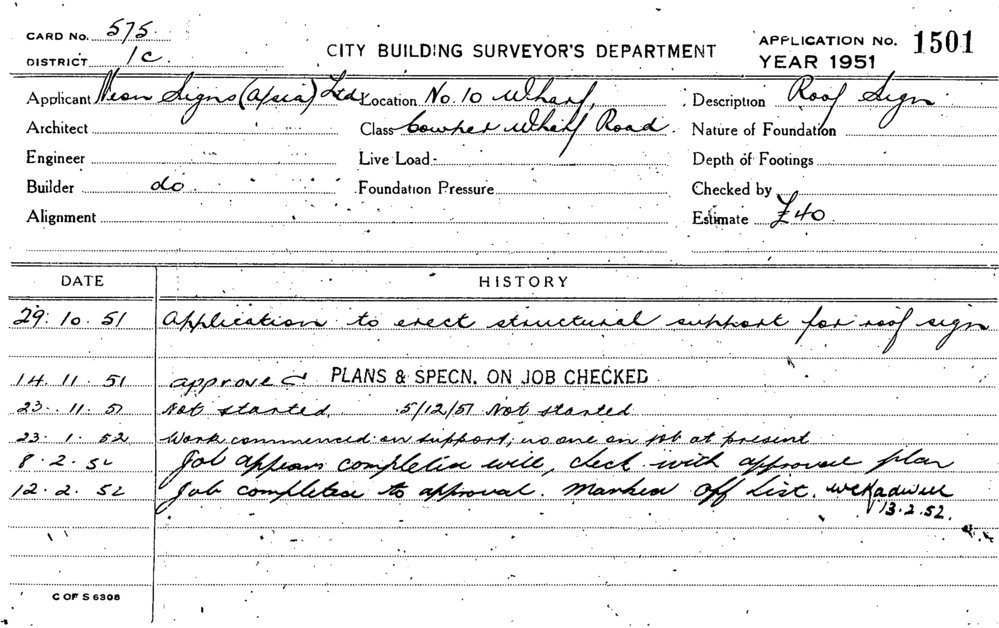 CARD No. 575
DISTRICT 1C
CITY BUILDING SURVEYOR'S DEPARTMENT
APPLICATION No. 1501
YEAR 1951
Applicant Neon Signs (A/sia) Ltd Location No. 10 Wharf, Description Roof Sign
Architect Class Cowper Wharf Road. Nature of Foundation
Engineer Live Load Depth of Footings
Builder do Foundation Pressure Checked by
Alignment Estimate £40
DATE HISTORY
29.10.51 Application to erect structural support for roof sign
14.11.51 approved PLANS & SPECN. ON JOB CHECKED
23.11.51 Not started 5/12/51 Not started
23.1.52 Work commenced on support, no one on job at present
8.2.52 Job appears completed will, check with approval plan
12.2.52 Job completed to approval. Marked off List.
13.2.52.
C OF S 6308